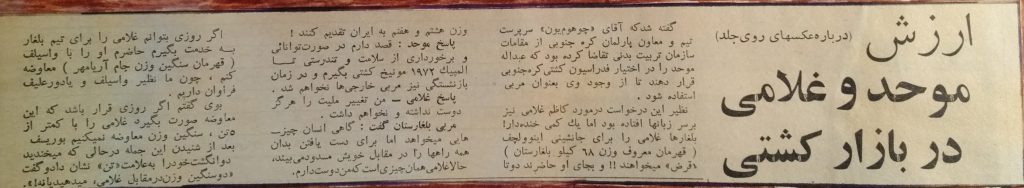 ارزش (درباره‌عکسهای روی‌جلد)
موحد و غلامی
در بازار کشتی
گفته شدکه آقای «چوهوم‌یون» سرپرست
تیم و معاون پارلمان کره جنوبی از مقامات
سازمان تربیت بدنی تقاضا کرده بود که عبداله
موحد را در اختیار فدراسیون کشتی‌کره‌جنوبی
قرار دهند تا از وجود وی بعنوان مربی
استفاده شود .
نظیر این درخواست درمورد کاظم غلامی نیز
برسر زبانها افتاده بود اما یك كمی خنده‌دار!
بلغارها غلامی را برای جانشینی اینوولچف
( قهرمان معروف وزن ۶۸ کیلو بلغارستان )
«قرض» میخواهند !! و بجای او حاضرند دوتا
وزن هشتم و هفتم به ایران تقدیم کنند !
پاسخ موحد : قصد دارم در صورت‌توانائی
و برخورداری از سلامت و تندرستی تا
المپیك ۱۹۷۲ مونیخ کشتی بگیرم و در زمان
بازنشستگی نیز مربی خارجی‌ها نخواهم شد .
پاسخ غلامی ـ من تغییر ملیت را هرگز
دوست نداشته و نخواهم داشت .
مربی بلغارستان گفت : گاهی انسان چیزـ
هایی میخواهد اما برای دست یافتن بدان
همه راهها را در مقابل خویش مسدودمی‌بیند،
حالاغلامی همان‌چیزی است‌که‌من‌دوست‌دارم.
اگر روزی بتوانم غلامی را برای تیم بلغار
به خدمت بگیرم حاضرم او را با واسیلف
( قهرمان سنگین وزن جام آریامهر ) معاوضه
کنم ، چون ما نظیر واسیلف و یادورعلیف
فراوان داریم .
بوی گفتم اگر روزی قرار باشد که این
معاوضه صورت بگیرد غلامی را با کمتر از
۵تن ، سنگین وزن معاوضه نمیکنیم بوریسف
بعد از شنیدن این جمله درحالی که میخندید
دوانگشت‌خودرا به‌علامت«تن» نشان دادوگفت
«دوسنگین وزن‌درمقابل غلامی، میدهیدیانه؟».